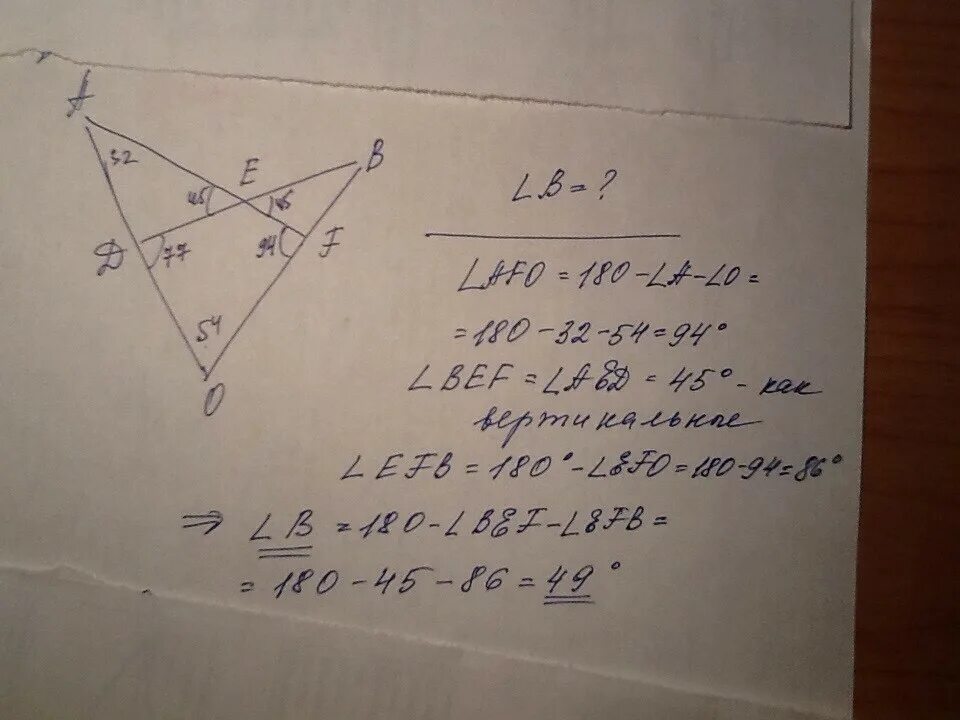 A
32
E
B
45
45
D
77
94
F
54
O
∠B = ?
∠AFO = 180 - ∠A - ∠O =
= 180 - 32 - 54 = 94°
∠BEF = ∠AED = 45° - как
вертикальные
∠EFB = 180° - ∠EFO = 180 - 94 = 86°
⇒ ∠B = 180 - ∠BEF - ∠EFB =
= 180 - 45 - 86 = 49°